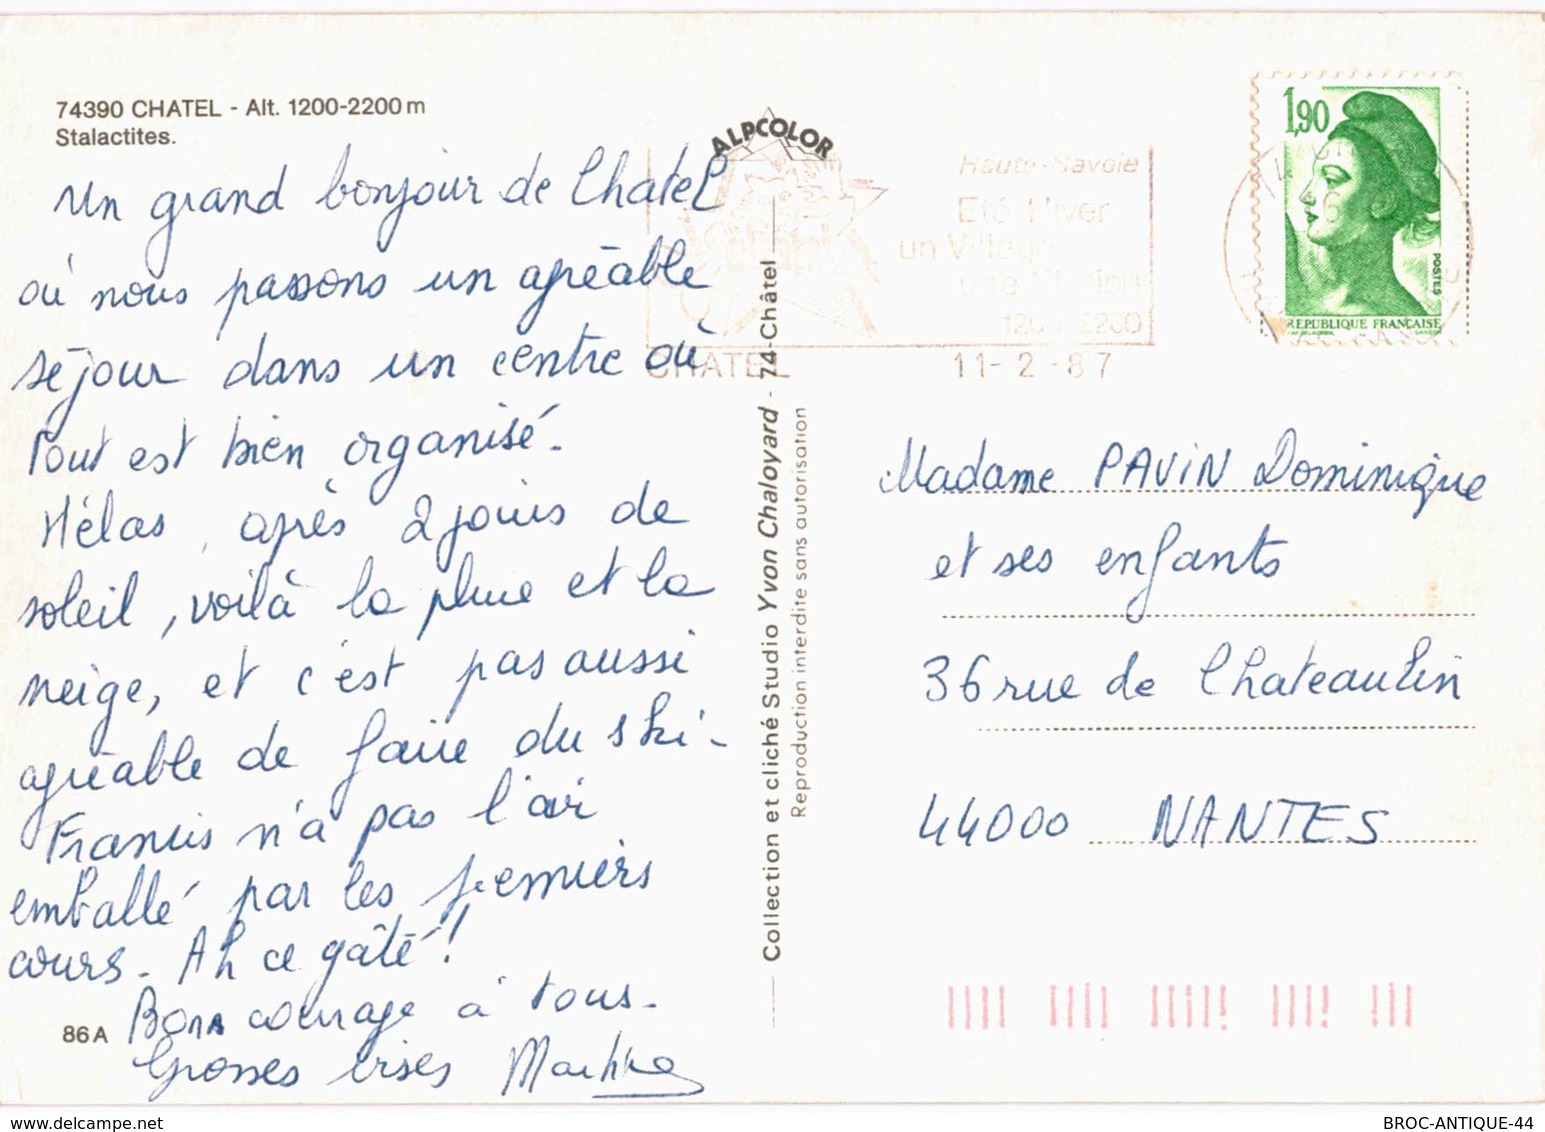 74390 CHATEL - Alt. 1200-2200 m
Stalactites.
Un grand bonjour de Chatel
où nous passons un agréable
séjour dans un centre où
tout est bien organisé.
Hélas, après 2 jours de
soleil, voilà la pluie et la
neige, et c'est pas aussi
agréable de faire du ski-
Francis n'a pas l'air
emballé par les premiers
cours. Ah ce gâté !
Bon courage à tous.
Grosses bises Martine
86 A
ALPCOLOR
Collection et cliché Studio Yvon Chaloyard - 74-Châtel
Reproduction interdite sans autorisation
Haute-Savoie
Eté Hiver
un Village
une Station
1200 2200
CHATEL
11-2-87
1,90
POSTES
REPUBLIQUE FRANÇAISE
Madame PAVIN Dominique
et ses enfants
36 rue de Chateaulin
44000 NANTES
www.delcampe.net
BROC-ANTIQUE-44